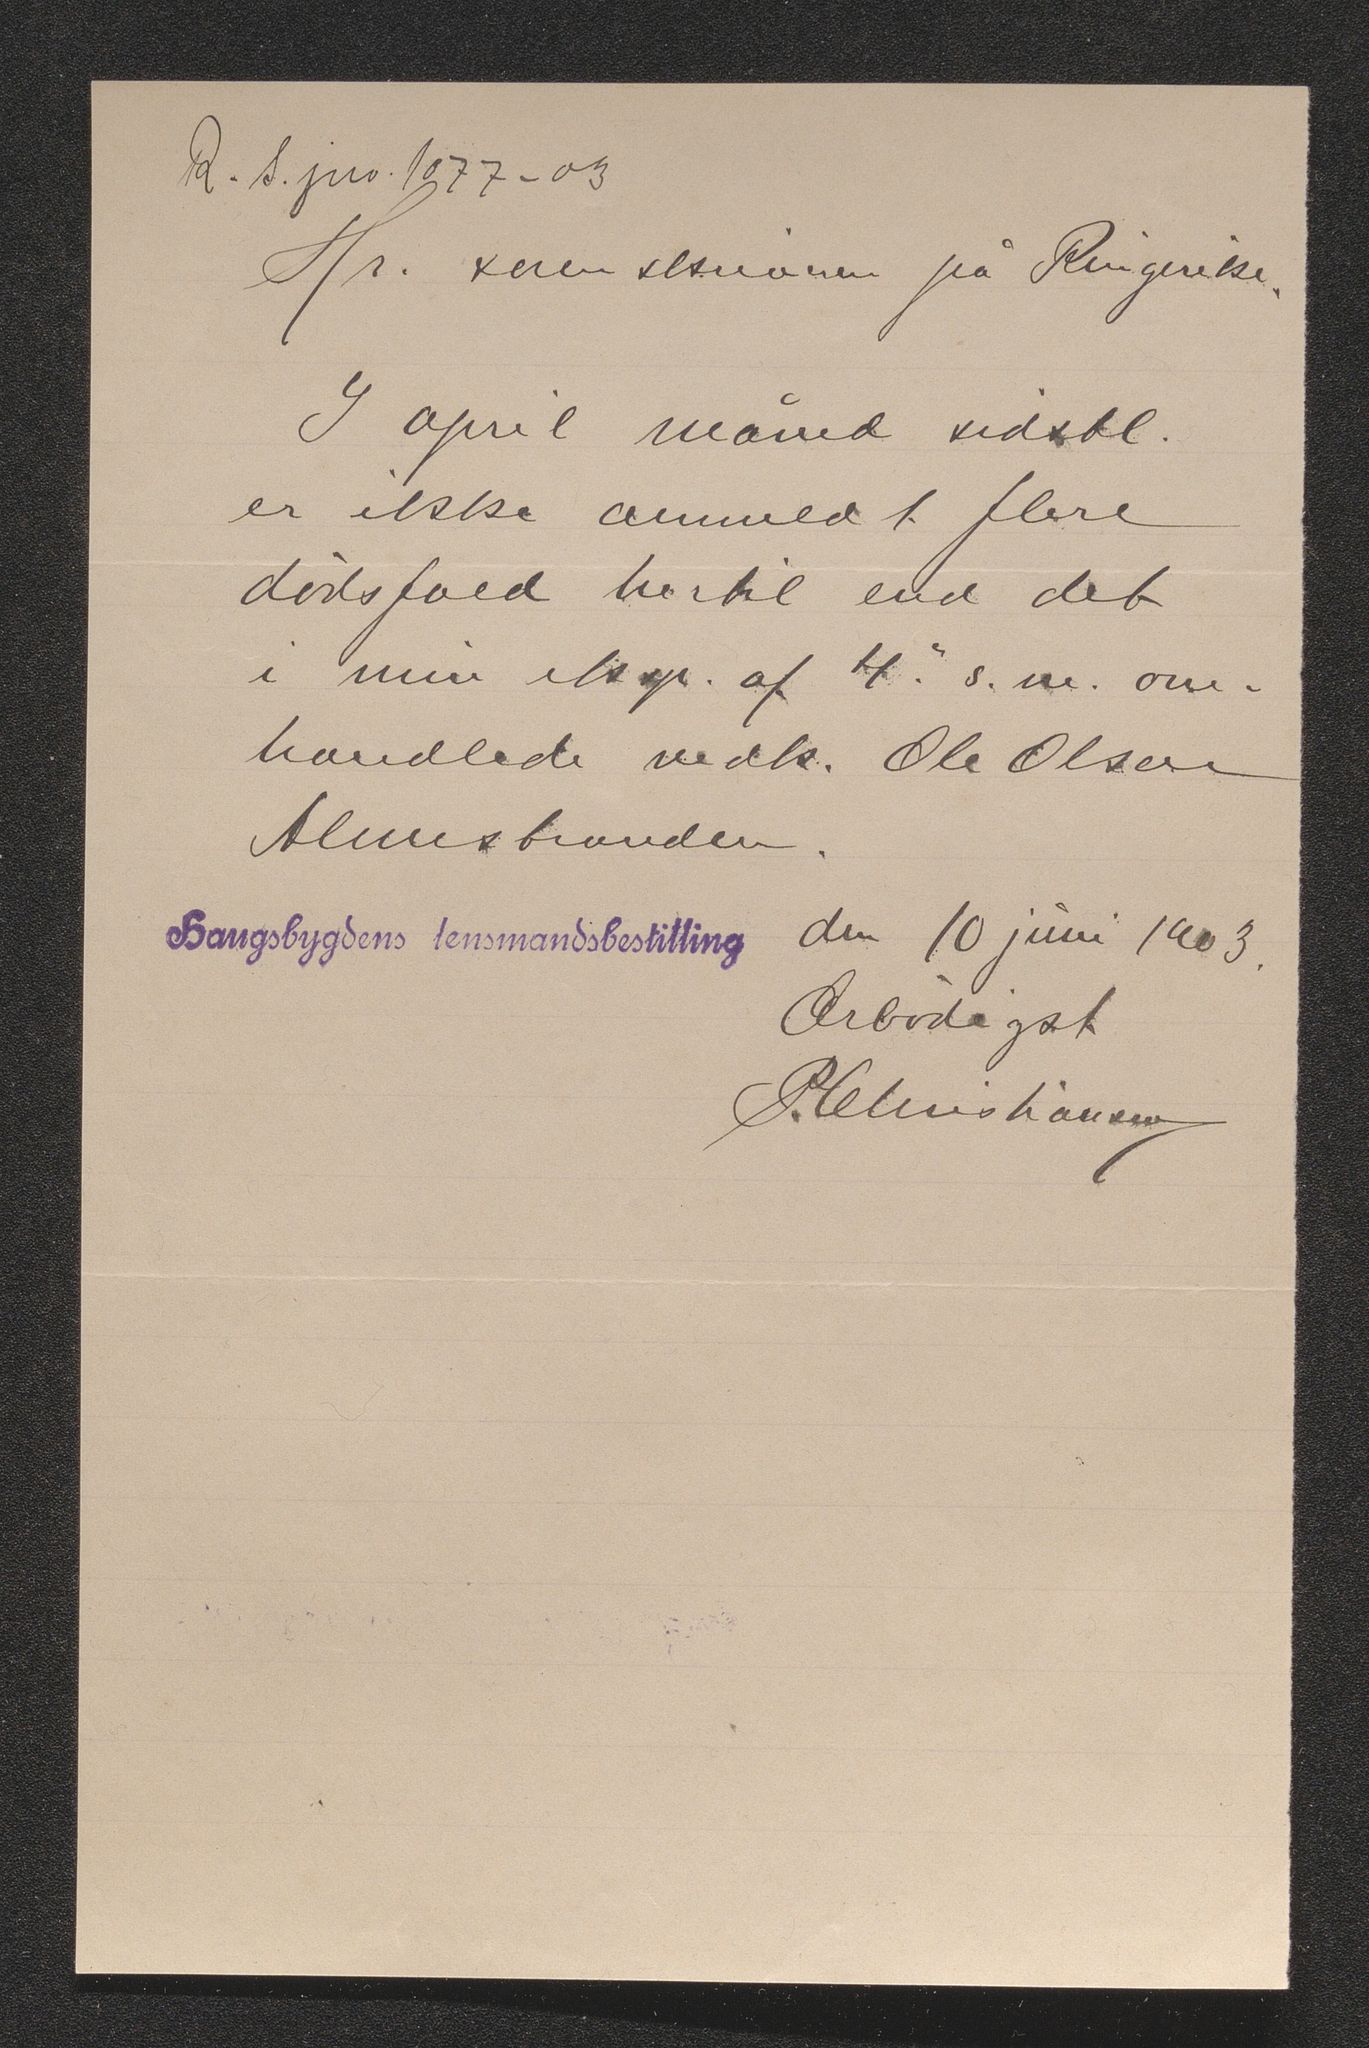 R. S. jno. 1077-03
Hr. sorenskriveren på Ringerike.
I april måned sidstl.
er ikke anmeldt flere
dödsfald hertil end det
i min eksp. af 4." s. m. om-
handlede vedk. Ole Olsen
Almestranden.
Haugsbygdens lensmandsbestilling den 10 juni 1903.
Ærbödigst
P. Christiansen